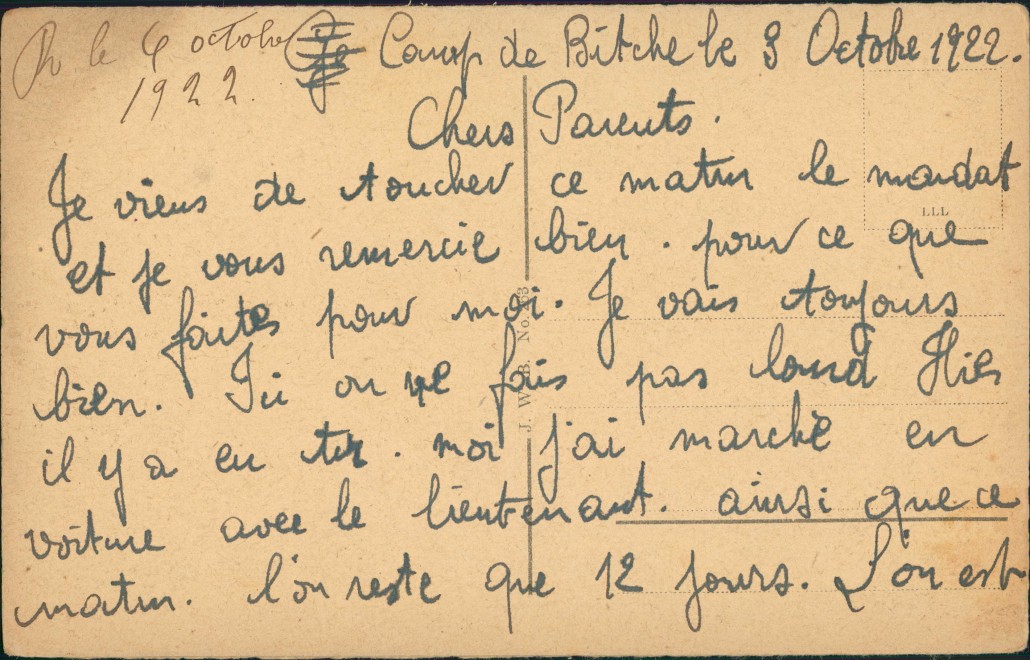 R le 6 octobre
1922.
Camp de Bitche le 3 Octobre 1922.
Chers Parents.
Je viens de toucher ce matin le mandat
LLL
et je vous remercie bien. pour ce que
vous faites pour moi. Je vais toujours
bien. Ici on ne fais pas lourd Hier
il y a eu tir. moi j'ai marché en
voiture avec le lieutenant. ainsi que ce
matin. l'on reste que 12 jours. L'on est
J. W. B. No.